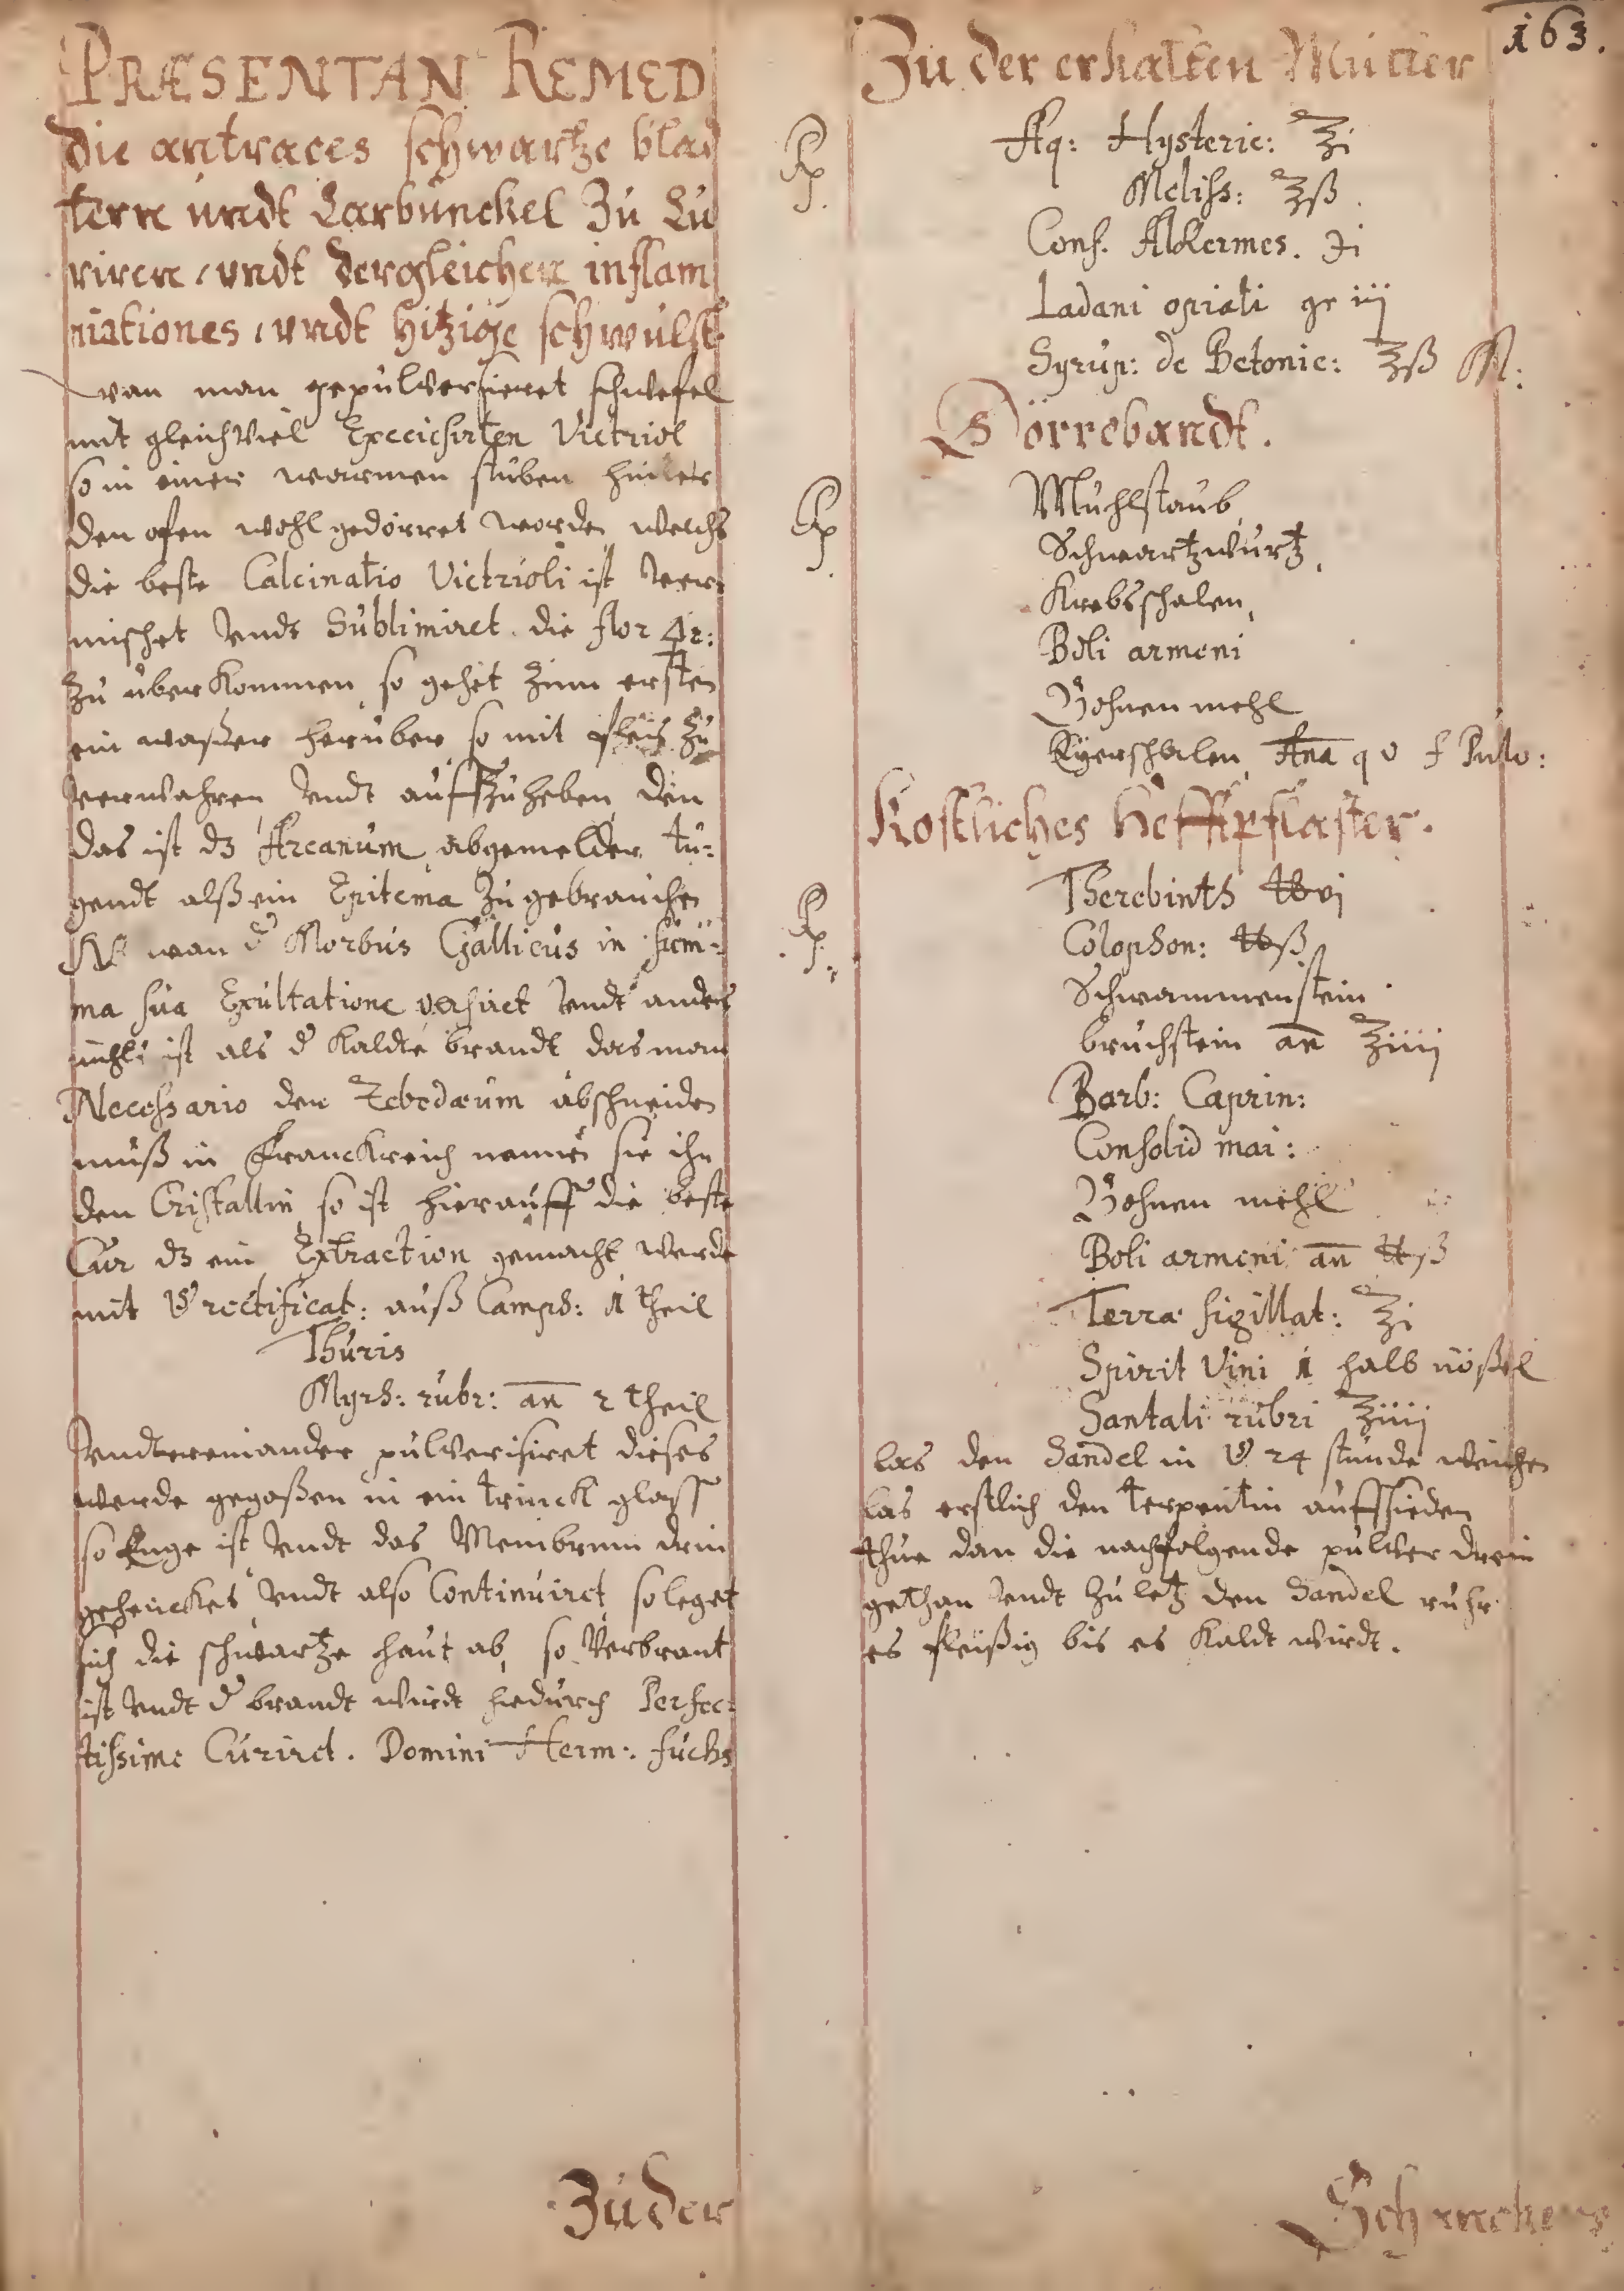 163.
PRÆSENTAN REMED
die antraces schwartze blad
tern undt Carbunckel Zu Cu
riren, undt dergleichen inflam
mationes, undt hitzige schwulst
wan man gepulverisieret schwefel
mit gleichviel Victriol
so in einer warmen stuben hinter
den ofen wohl gedörret worden, welchs
die beste Calcinatio Victrioli ist ver=
mischet undt Sublimiret die flor 🜍r:
Zu überkommen, so gehet Zum ersten
ein waßer herüber so mit fleis Zu
verwahren undt auffzuheben, den
das ist dz Arcanum abgemelder tu=
gendt alß ein Epitema zu gebrauchen
NB wan d Morbus Gallicus in sum=
ma sua Exultatione versiret undt anders
nichts ist als d Kaldte brandt das man
Necessario den Zebedæum abschneiden
muß in Franckreich nennen sie ihn
den Cristallin, so ist hierauff die beste
Cur dz ein Extraction gemacht werde
mit rectificat: auß Camph: 1 theil
Thuris
Myrh: rubr: an 2 theil
undtereinander pulverisiret dieses
werde gegoßen in ein trinck glass
so Enge ist undt das Membrum drin
gehencket undt also Continuiret, so leget
sich die schwartze haut ab, so verbrant
ist undt d brandt wirdt hiedurch Perfec=
tissime Curiret. Domini Herm: fuchs
Zu der
Zu der erkalten Mutter
℞ Aq: Hysteric: ℥i
Meliss: ℥ß
Conf. Alkermes. ℈i
Ladani opiati gr iij
Syrup: de Betonic: ℥ß M:
Dörrebandt.
℞ Muhlstaub
Schwartzwurtz,
Krebsschalen,
Boli armeni
Bohnen mehl
Eyerschalen, Ana q v f Pulv:
Kostliches Hefftpflaster.
℞ Therebinth ℔vi
Colophon: ℔ß
Schwammenstein
bruchstein an ℥iiij
Barb: Caprin:
Consolid mai:
Bohnen mehl
Boli armeni an ℔ß
Terra sigillat: ℥i
Spirit Vini 1 halb nößel
Santali rubri ℥iiij
las den Sandel in 24 stunde weichen
las erstlich den terpentin auffsieden
thue dan die nachfolgende pulver drein
gethan undt Zu letz den Sandel ruhr
es fleißig bis es Kaldt wirdt.